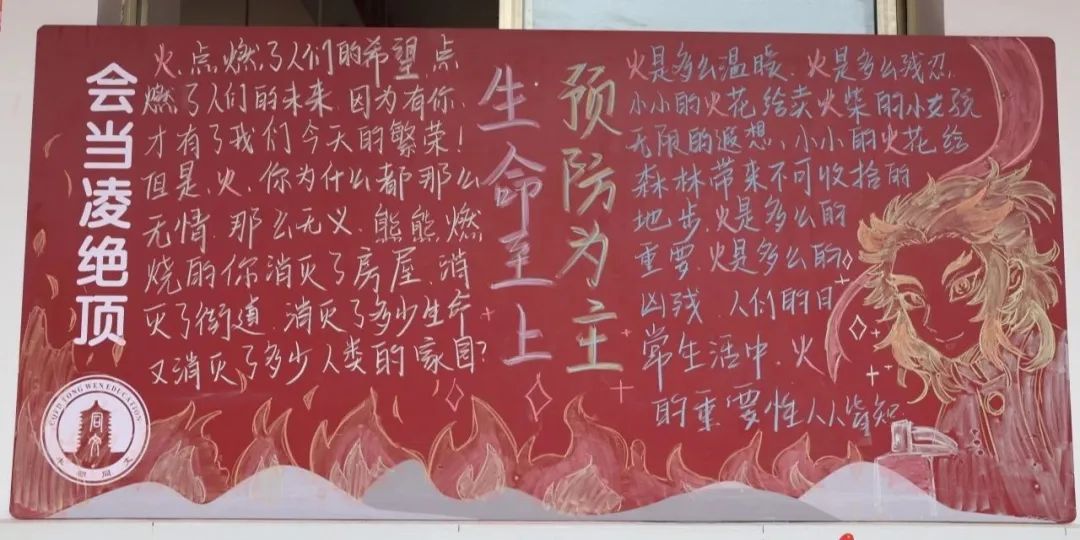 会当凌绝顶
火、点燃了人们的希望、点
燃了人们的未来、因为有你、
才有了我们今天的繁荣!
但是、火、你为什么都那么
无情、那么无义、熊熊燃
烧的你消灭了房屋、消
灭了街道、消灭了多少生命
又消灭了多少人类的家园?
生命至上
预防为主
火是多么温暖、火是多么残忍、
小小的火花给卖火柴的小女孩
无限的遐想、小小的火花给
森林带来不可收拾的
地步、火是多么的
重要、火是多么的
凶残、人们的日
常生活中、火
的重要性人人皆知
TONG WEN EDUCATION